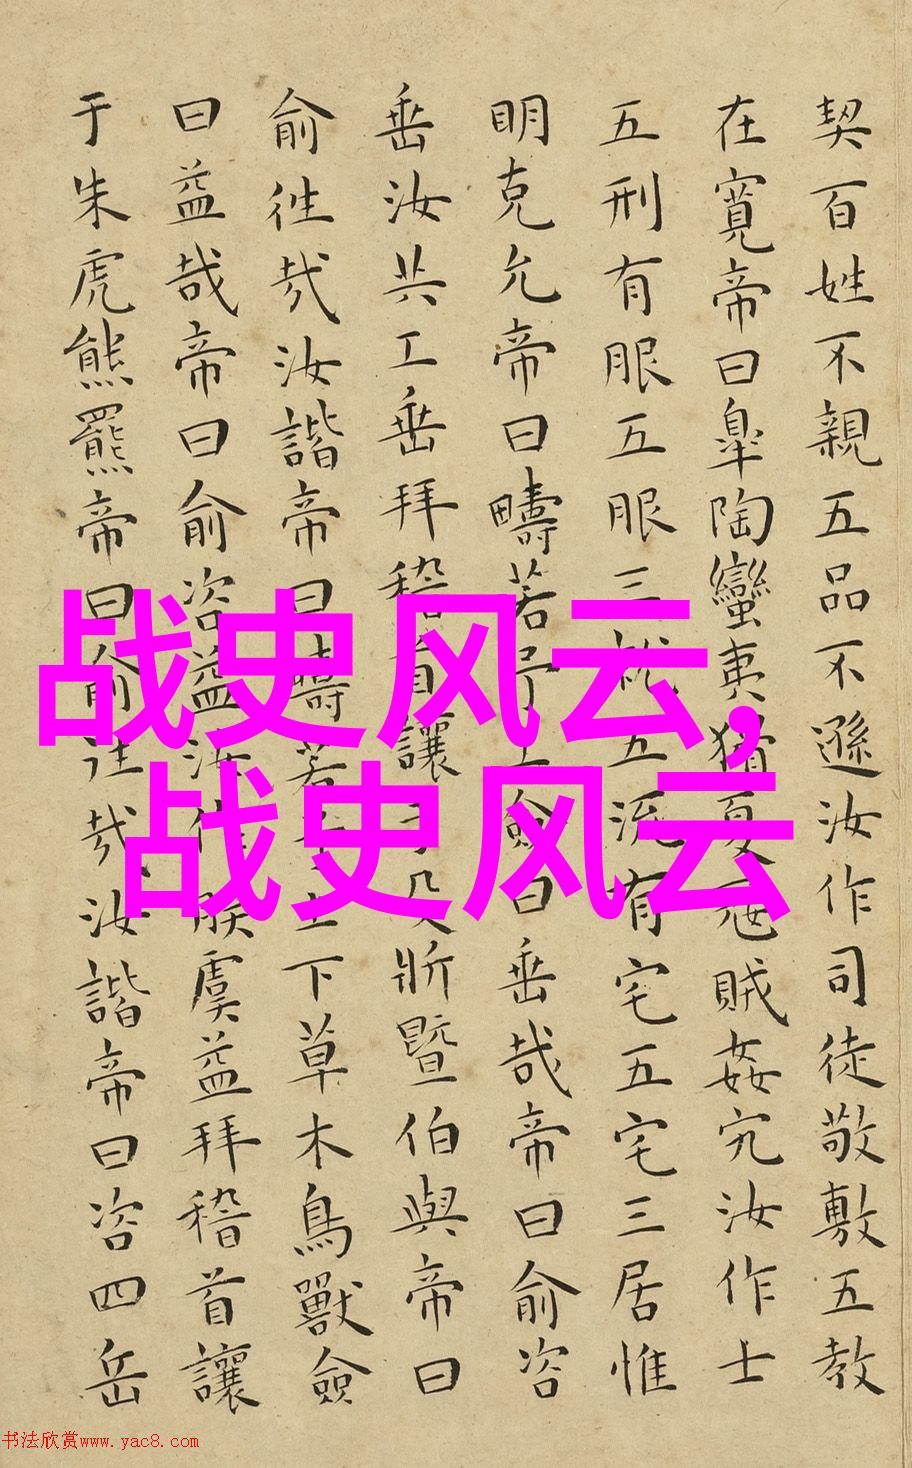 契百姓不親五品不遜汝作司徒敬敷五教
在寬帝曰皐陶蠻夷猾夏寇賊姦宄汝作士
五刑有服五服三就五流有宅五宅三居惟
明克允帝曰疇若予工僉曰垂哉帝曰俞咨
垂汝共工垂拜稽首讓于殳斨暨伯與帝曰
俞往哉汝諧帝曰疇若予上下草木鳥獸僉
曰益哉帝曰俞咨益汝作朕虞益拜稽首讓
于朱虎熊羆帝曰俞往哉汝諧帝曰咨四岳
战史风云,
战史风云
书法欣赏www.yac8.com